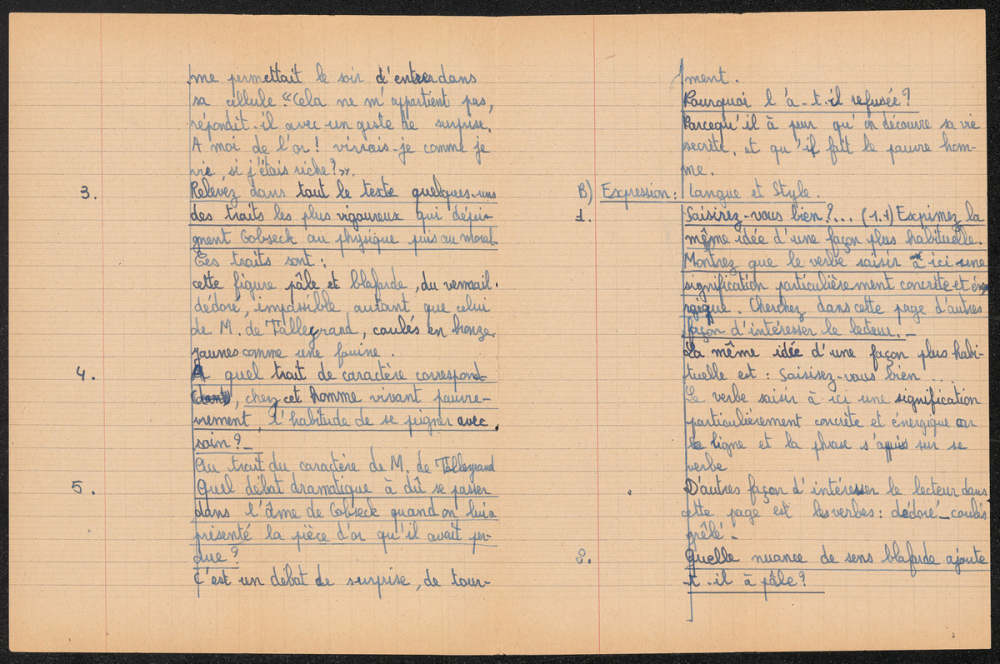 me permettait le soir d'entrer dans
sa cellule "Cela ne m'appartient pas,
répondit-il avec un geste de surprise.
A moi de l'or! vivrais-je comme je
vie, si j'étais riche?».
3. Relevez dans tout le texte quelques-uns
des traits les plus vigoureux qui dépei-
gnent Gobseck au physique puis au moral.
Ces traits sont :
cette figure pâle et blafarde, du vermeil
dédoré, impassible autant que celui
de M. de Talleyrand, coulés en bronze
jaunes comme une fouine.
4. A quel trait de caractère correspond-
, chez cet homme vivant pauvre-
vrement, l'habitude de se peigner avec
soin ?_
Au trait du caractère de M. de Talleyrand
5. Quel débat dramatique à dû se passer
dans l'âme de Gobseck quand on lui a
présenté la pièce d'or qu'il avait per-
due ?
C'est un débat de surprise, de tour-
ment.
Pourquoi l'à-t-il refusée ?
Parcequ'il à peur qu'on découvre sa vie
secrite, et qu'il fait le pauvre hom-
me.
B) Expression : Langue et Style.
1. Saisirez-vous bien ?... (-1.1) Expimez la
même idée d'une façon plus habituelle.
Montrez que le verbe saisir à ici une
signification particulièrement concrète et éner
gique. Cherchez dans cette page d'autres
façon d'intéresser le lecteur._
La même idée d'une façon plus habi-
tuelle est : Saisisez-vous bien ...
Le verbe saisir à ici une signification
particulièrement concrète et énergique car
la ligne et la phrase s'appuis sur se
verbe
D'autres façon d'intéresser le lecteur dans
cette page est les verbes : dédoré_coulés
grêlé-
2. Quelle nuance de sens blafarde ajoute
-t-il à pâle ?